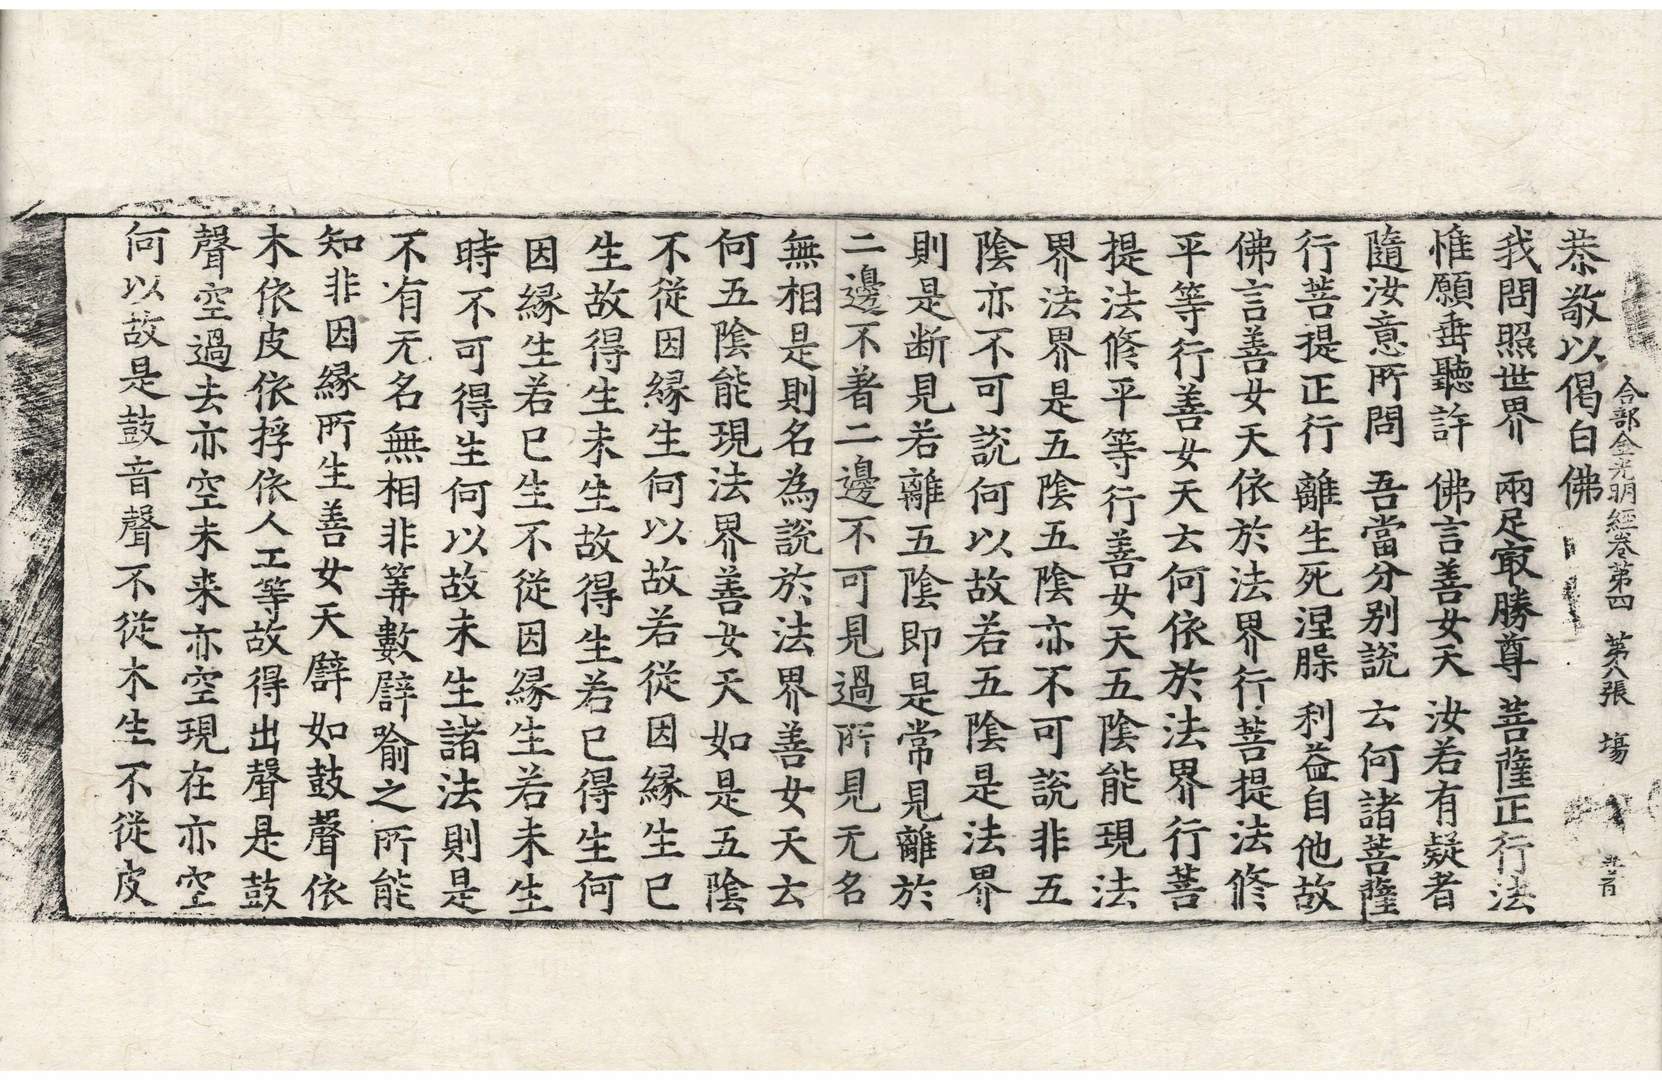 合部金光明經卷第四 第八張 場
恭敬以偈白佛
我問照世界 兩足㝡勝尊 菩薩正行法
惟願垂聽許 佛言善女天 汝若有疑者
隨汝意所問 吾當分别說 云何諸菩薩
行菩提正行 離生死涅槃 利益自他故
佛言善女天依於法界行菩提法修
平等行善女天云何依於法界行菩
提法修平等行善女天五陰能現法
界法界是五陰五陰亦不可說非五
陰亦不可說何以故若五陰是法界
則是断見若離五陰即是常見離於
二邊不著二邊不可見過所見无名
無相是則名為說於法界善女天云
何五陰能現法界善女天如是五陰
不從因緣生何以故若從因緣生已
生故得生未生故得生若已得生何
因緣生若已生不從因緣生若未生
時不可得生何以故未生諸法則是
不有无名無相非筭數譬喻之所能
知非因緣所生善女天譬如鼓聲依
木依皮依桴依人工等故得出聲是鼓
聲空過去亦空未来亦空現在亦空
何以故是鼓音聲不從木生不從皮